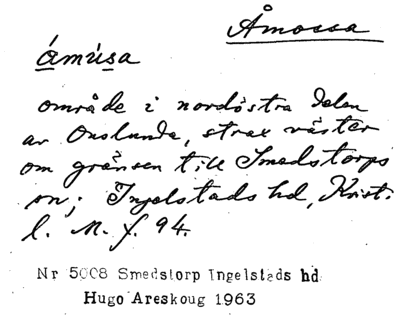 Åmossa
ámúsa
område i nordöstra delen
av Onslunda, strax väster
om gränsen till Smedstorps
sn; Ingelstads hd, Krist.
l. M. f. 94.
Nr 5008 Smedstorp Ingelstads hd
Hugo Areskoug 1963